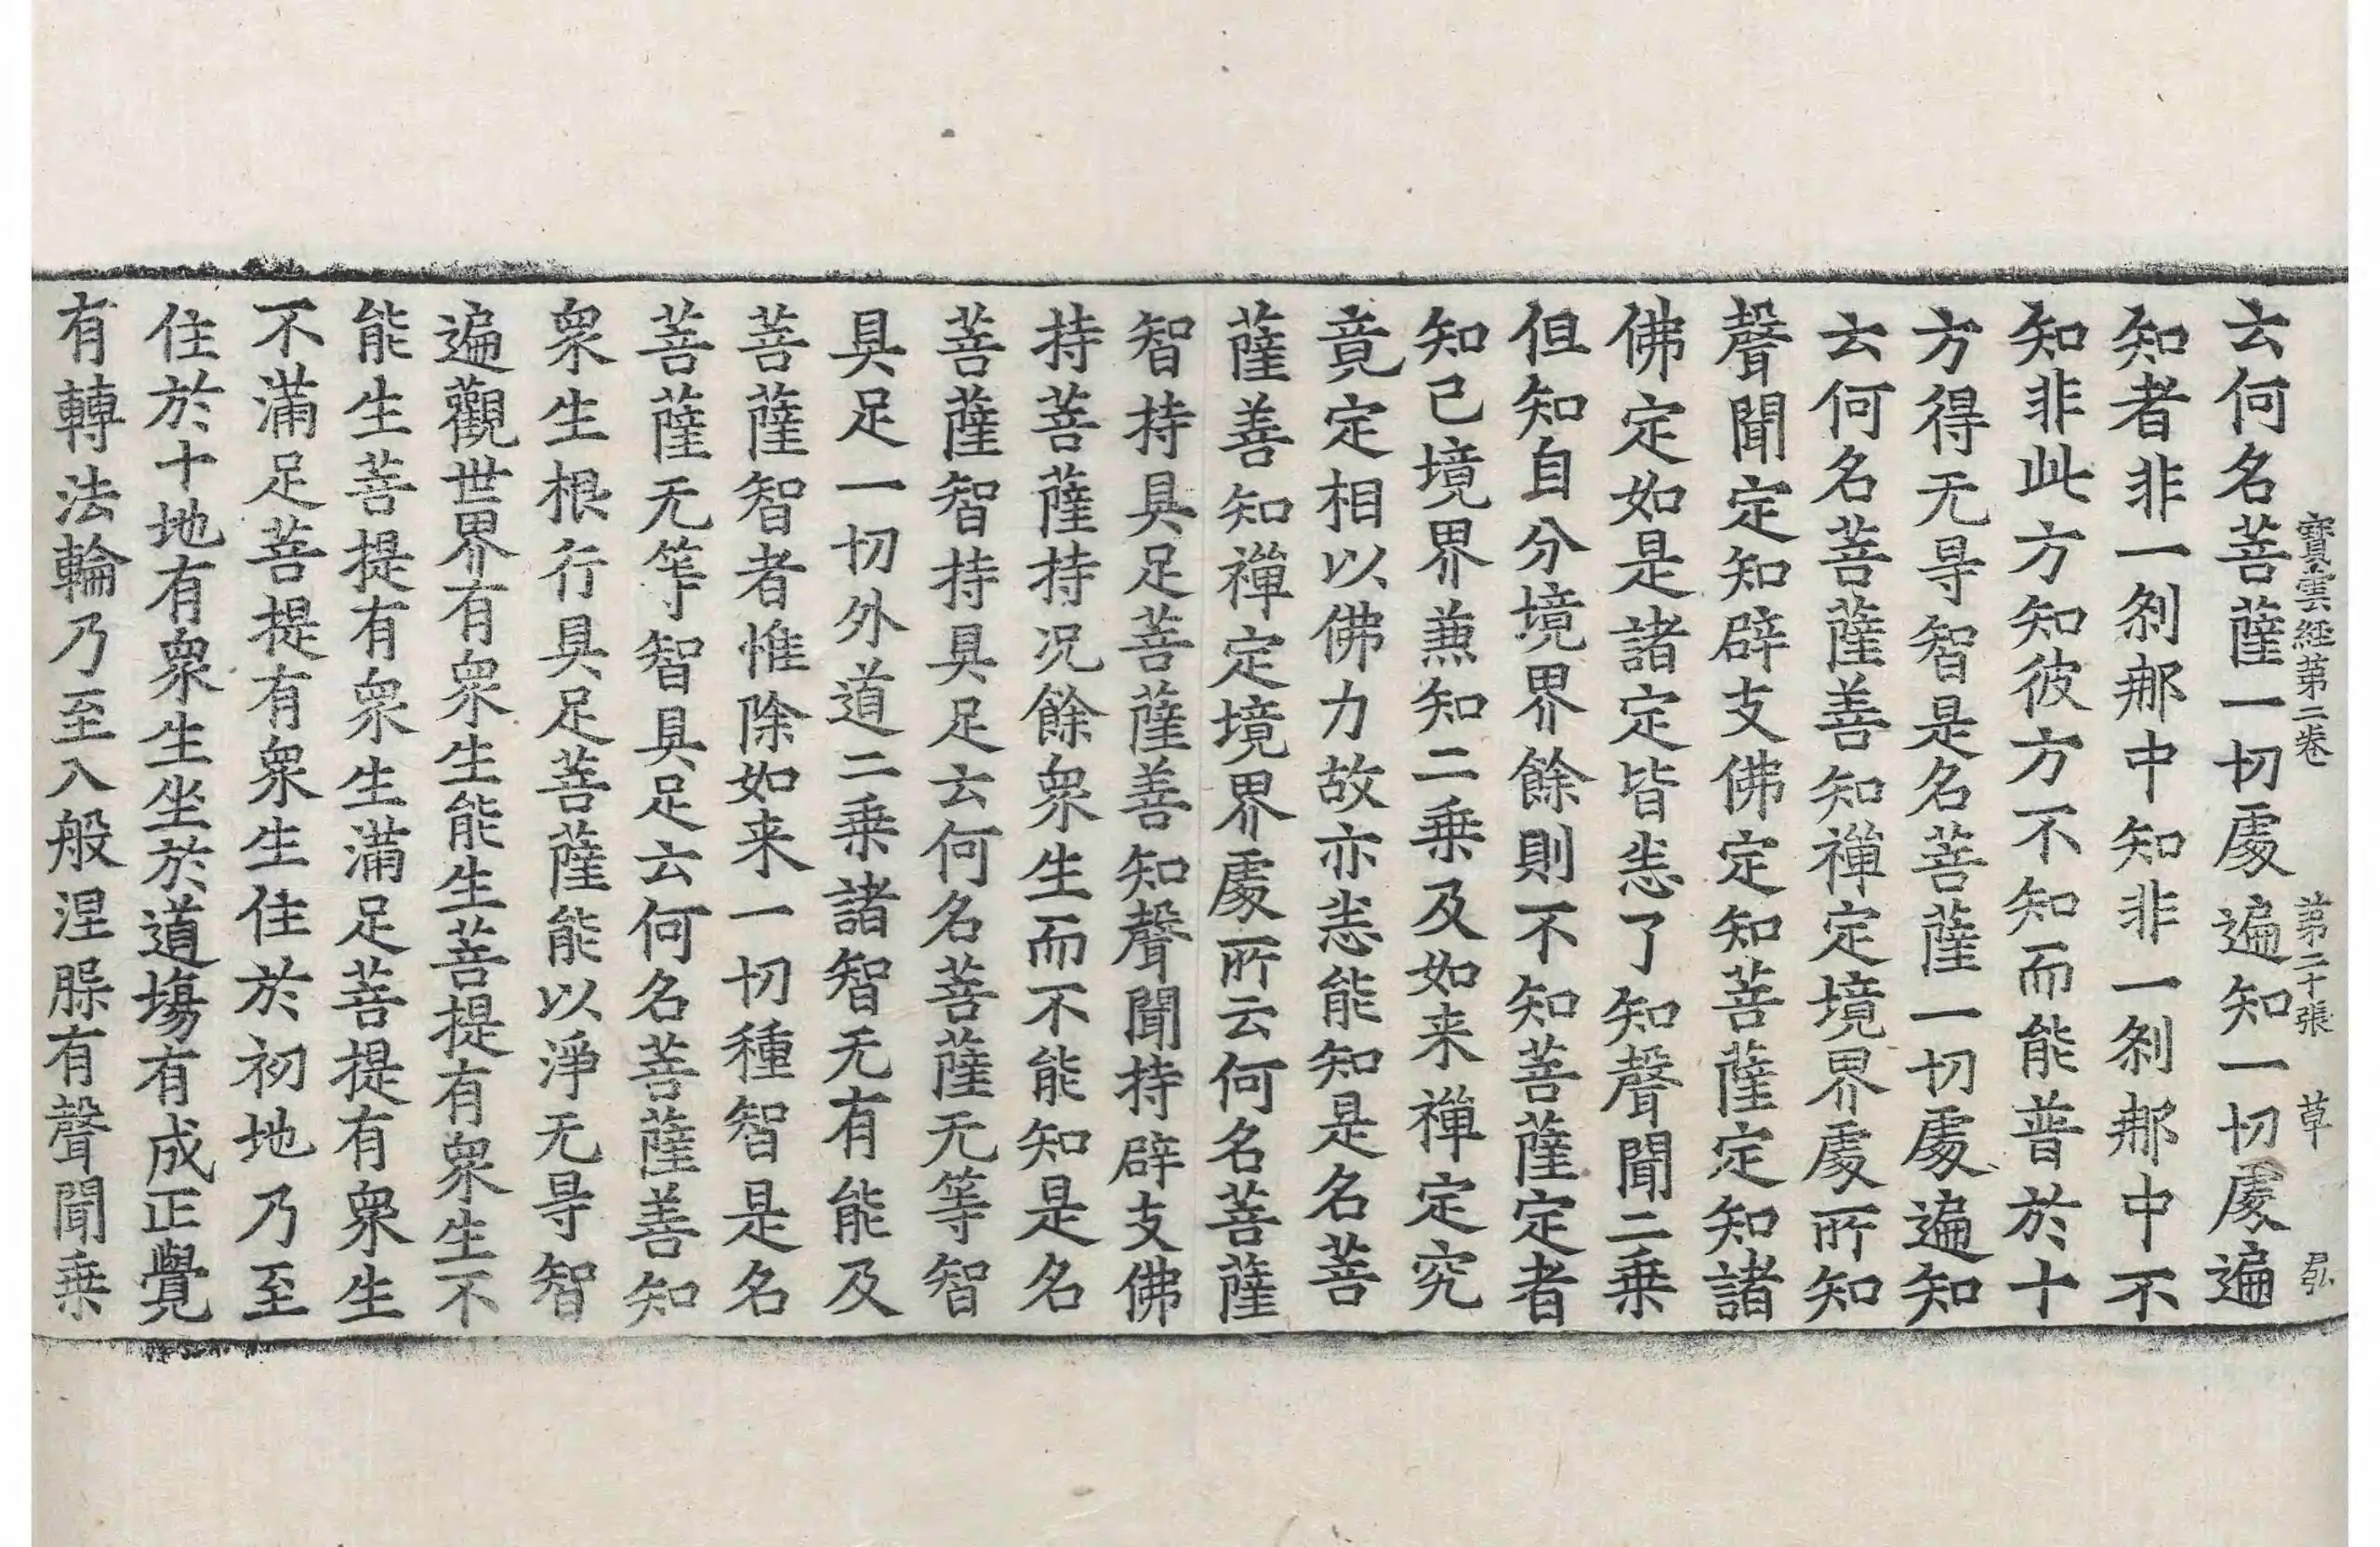 寶雲經第二卷 第二十張 草 君弘
云何名菩薩一切處遍知一切處遍
知者非一刹那中知非一刹那中不
知非此方知彼方不知而能普於十
方得无㝵智是名菩薩一切處遍知
云何名菩薩善知禪定境界處所知
聲聞定知辟支佛定知菩薩定知諸
佛定如是諸定皆悉了知聲聞二乗
但知自分境界餘則不知菩薩定者
知已境界兼知二乗及如来禪定究
竟定相以佛力故亦悉能知是名菩
薩善知禪定境界處所云何名菩薩
智持具足菩薩善知聲聞持辟支佛
持菩薩持况餘衆生而不能知是名
菩薩智持具足云何名菩薩无等智
具足一切外道二乗諸智无有能及
菩薩智者惟除如来一切種智是名
菩薩无等智具足云何名菩薩善知
衆生根行具足菩薩能以淨无㝵智
遍觀世界有衆生能生菩提有衆生不
能生菩提有衆生滿足菩提有衆生
不滿足菩提有衆生住於初地乃至
住於十地有衆生坐於道場有成正覺
有轉法輪乃至入般涅槃有聲聞乗